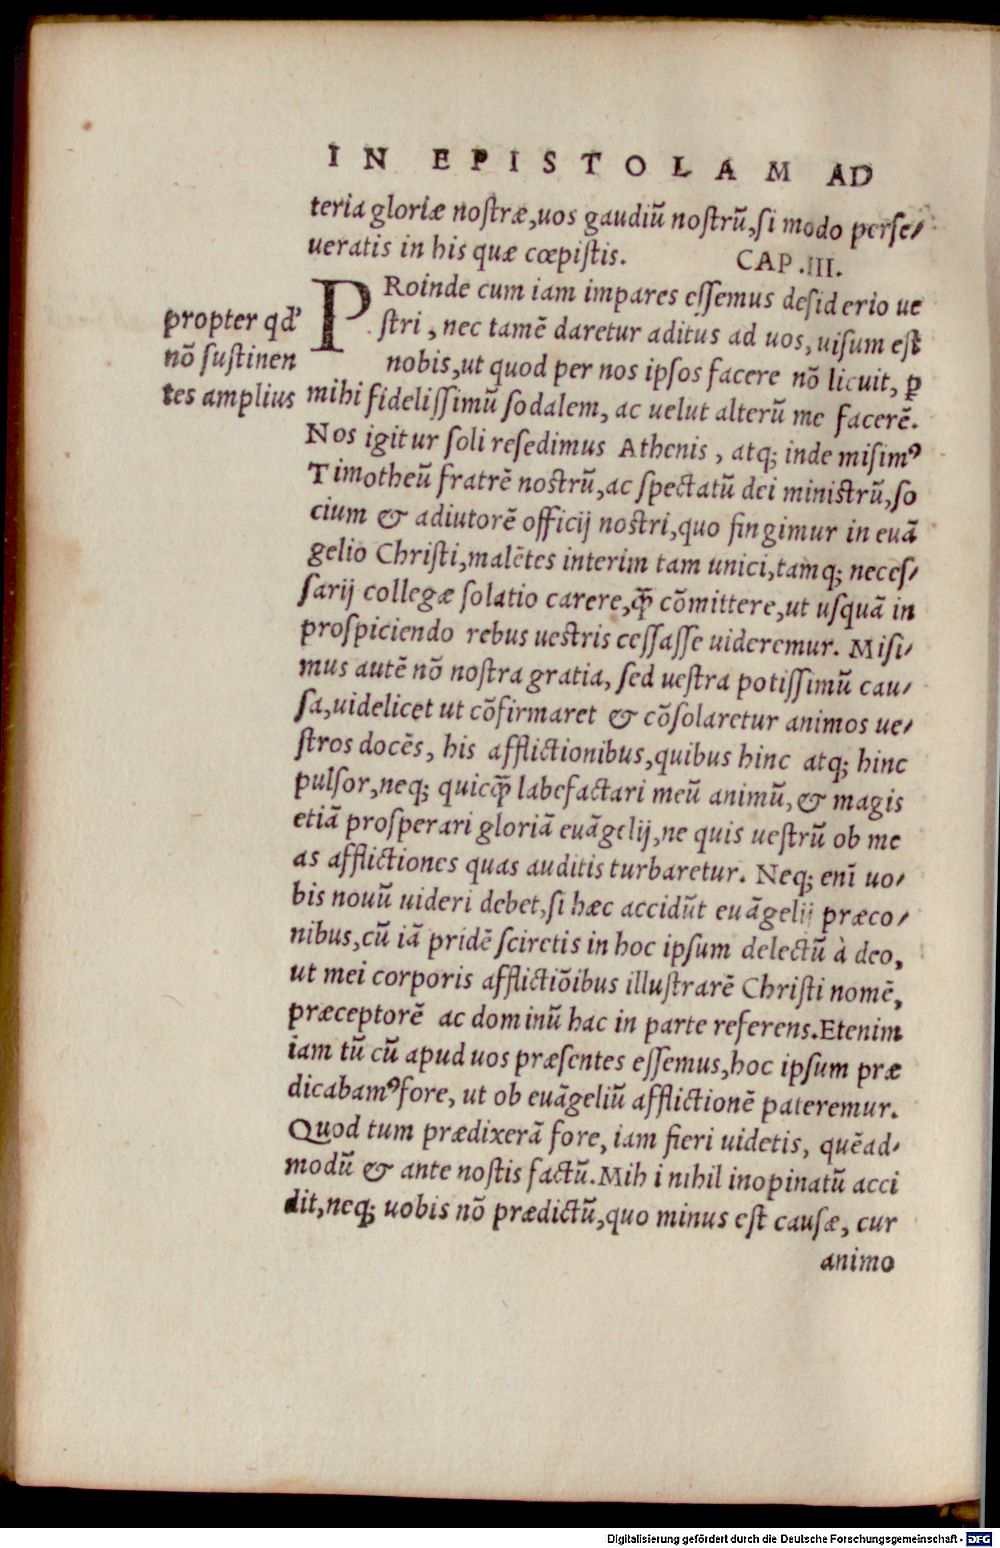 IN EPISTOLAM AD
teria gloriæ nostræ,uos gaudiũ nostrũ,si modo perse/
ueratis in his quæ cœpistis. CAP.III.
PRoinde cum iam impares essemus desiderio ue
stri, nec tamẽ daretur aditus ad uos, uisum est
nobis,ut quod per nos ipsos facere nõ licuit, ꝑ
mihi fidelissimũ sodalem, ac uelut alterũ me facerẽ.
Nos igitur soli resedimus Athenis, atq; inde misimꝰ
Timotheũ fratrẽ nostrũ,ac spectatũ dei ministrũ,so
cium & adiutorẽ officij nostri,quo fingimur in euã
gelio Christi,malẽtes interim tam unici,tamq; neces/
sarij collegæ solatio carere,q̃ cõmittere,ut usquã in
prospiciendo rebus uestris cessasse uideremur. Misi/
mus autẽ nõ nostra gratia, sed uestra potissimũ cau/
sa,uidelicet ut cõfirmaret & cõsolaretur animos ue/
stros docẽs, his afflictionibus,quibus hinc atq; hinc
pulsor,neq; quicq̃ labefactari meũ animũ,& magis
etiã prosperari gloriã euãgelij,ne quis uestrũ ob me
as afflictiones quas auditis turbaretur. Neq; enĩ uo/
bis nouũ uideri debet,si hæc accidũt euãgelij præco/
nibus,cũ iã pridẽ sciretis in hoc ipsum delectũ à deo,
ut mei corporis afflictiõibus illustrarẽ Christi nomẽ,
præceptorẽ ac dominũ hac in parte referens.Etenim
iam tũ cũ apud uos præsentes essemus,hoc ipsum præ
dicabamꝰ fore, ut ob euãgeliũ afflictionẽ pateremur.
Quod tum prædixerã fore, iam fieri uidetis, quẽad/
modũ & ante nostis factũ.Mihi nihil inopinatũ acci
dit,neq; uobis nõ prædictũ,quo minus est causæ, cur
animo
propter qd'
nõ sustinen
tes amplius
Digitalisierung gefördert durch die Deutsche Forschungsgemeinschaft - DFG